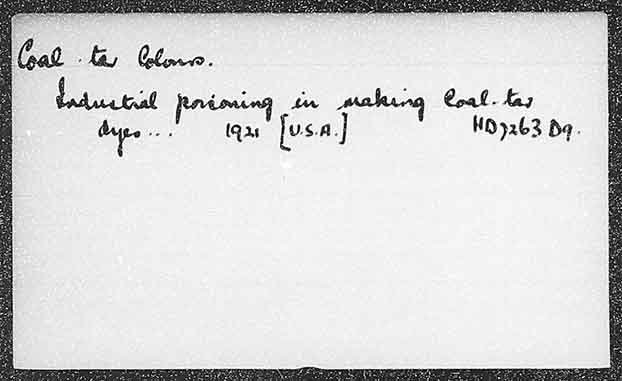 Coal-tar Colours.
Industrial poisoning in making Coal-tar
dyes... 1921 [U.S.A.] HD7263 D9.